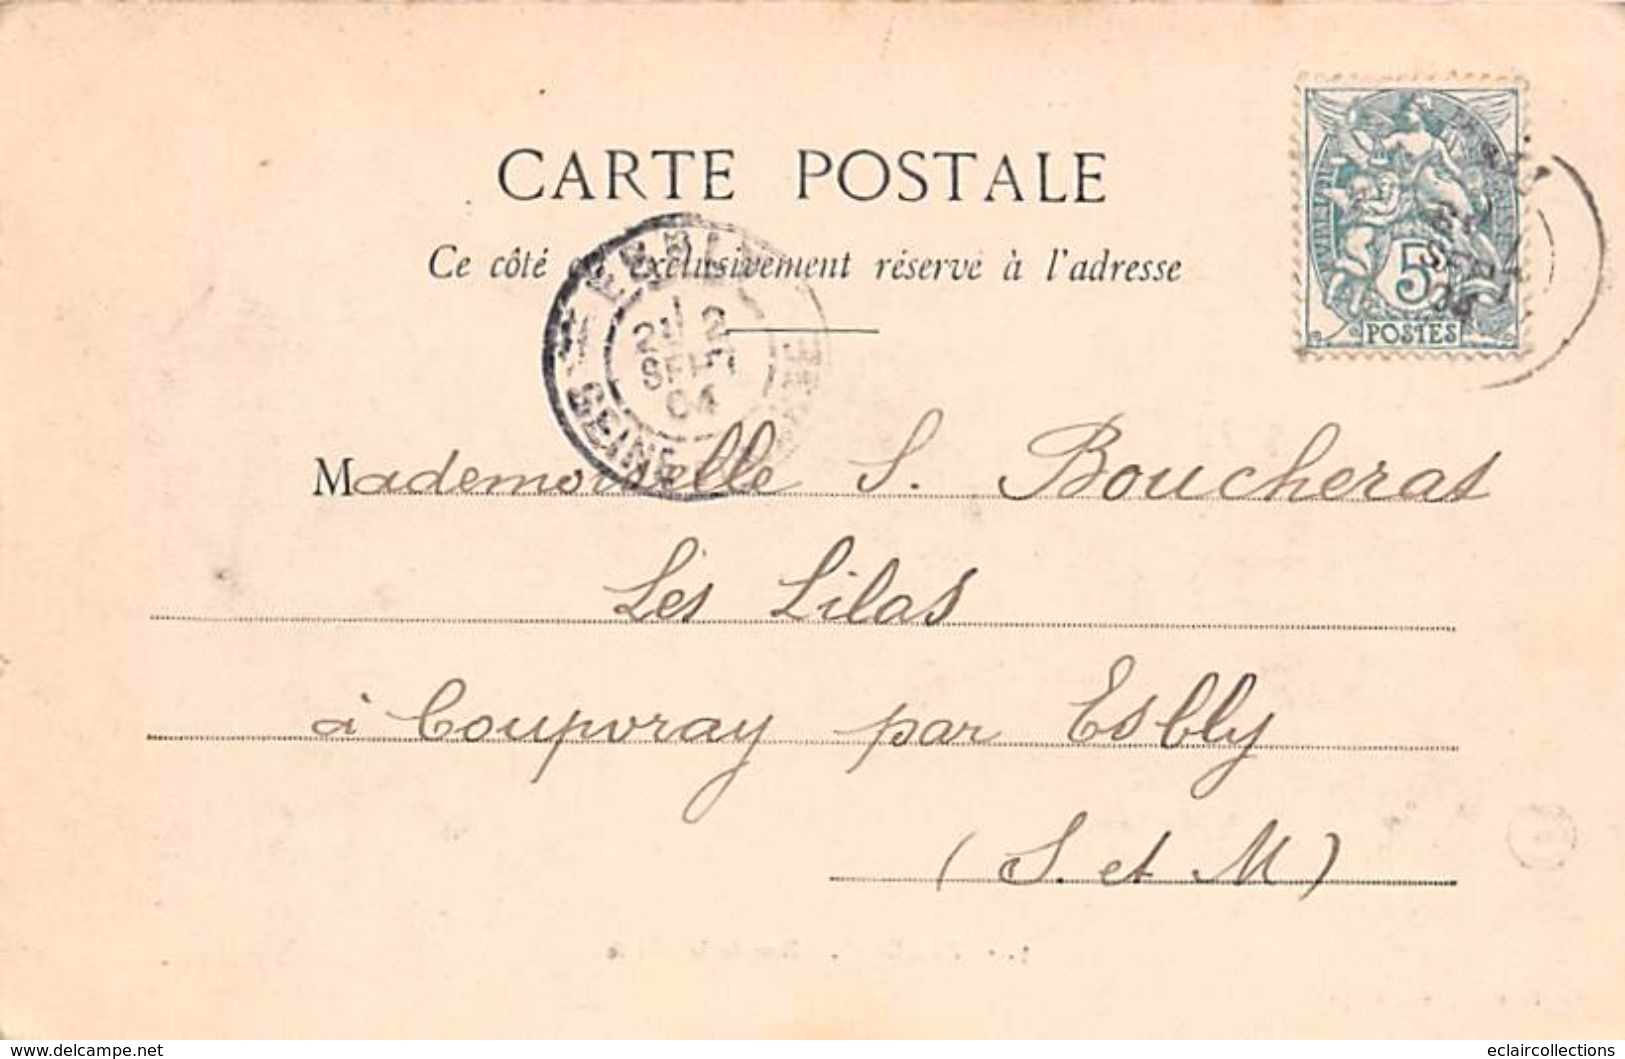 CARTE POSTALE
Ce côté est exclusivement réservé à l'adresse
ESBLY
2
SEPT
04
SEINE
5
POSTES
Mademoiselle S. Boucheras
Les Lilas
à Coupvray par Esbly
(S. et M)
www.delcampe.net
eclaircollections